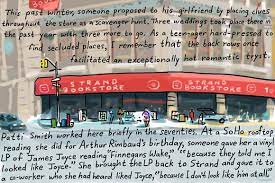 This past winter, someone proposed to his girlfriend by placing clues
throughout the store as a scavenger hunt. Three weddings took place there in
the past year with three more to go. As a teen-ager hard-pressed to
find secluded places, I remember that the back rows once
facilitated an exceptionally hot romantic tryst.
STRAND
BOOKSTORE
STRAND
BOOKSTORE
Patti Smith worked here briefly in the seventies. At a SoHo rooftop
reading she did for Arthur Rimbaud's birthday, someone gave her a vinyl
LP of James Joyce reading "Finnegans Wake," "because they told me I
looked like Joyce." She brought the LP back to Strand and gave it to
a co-worker who she had heard liked Joyce, "because I don't look like him at all."